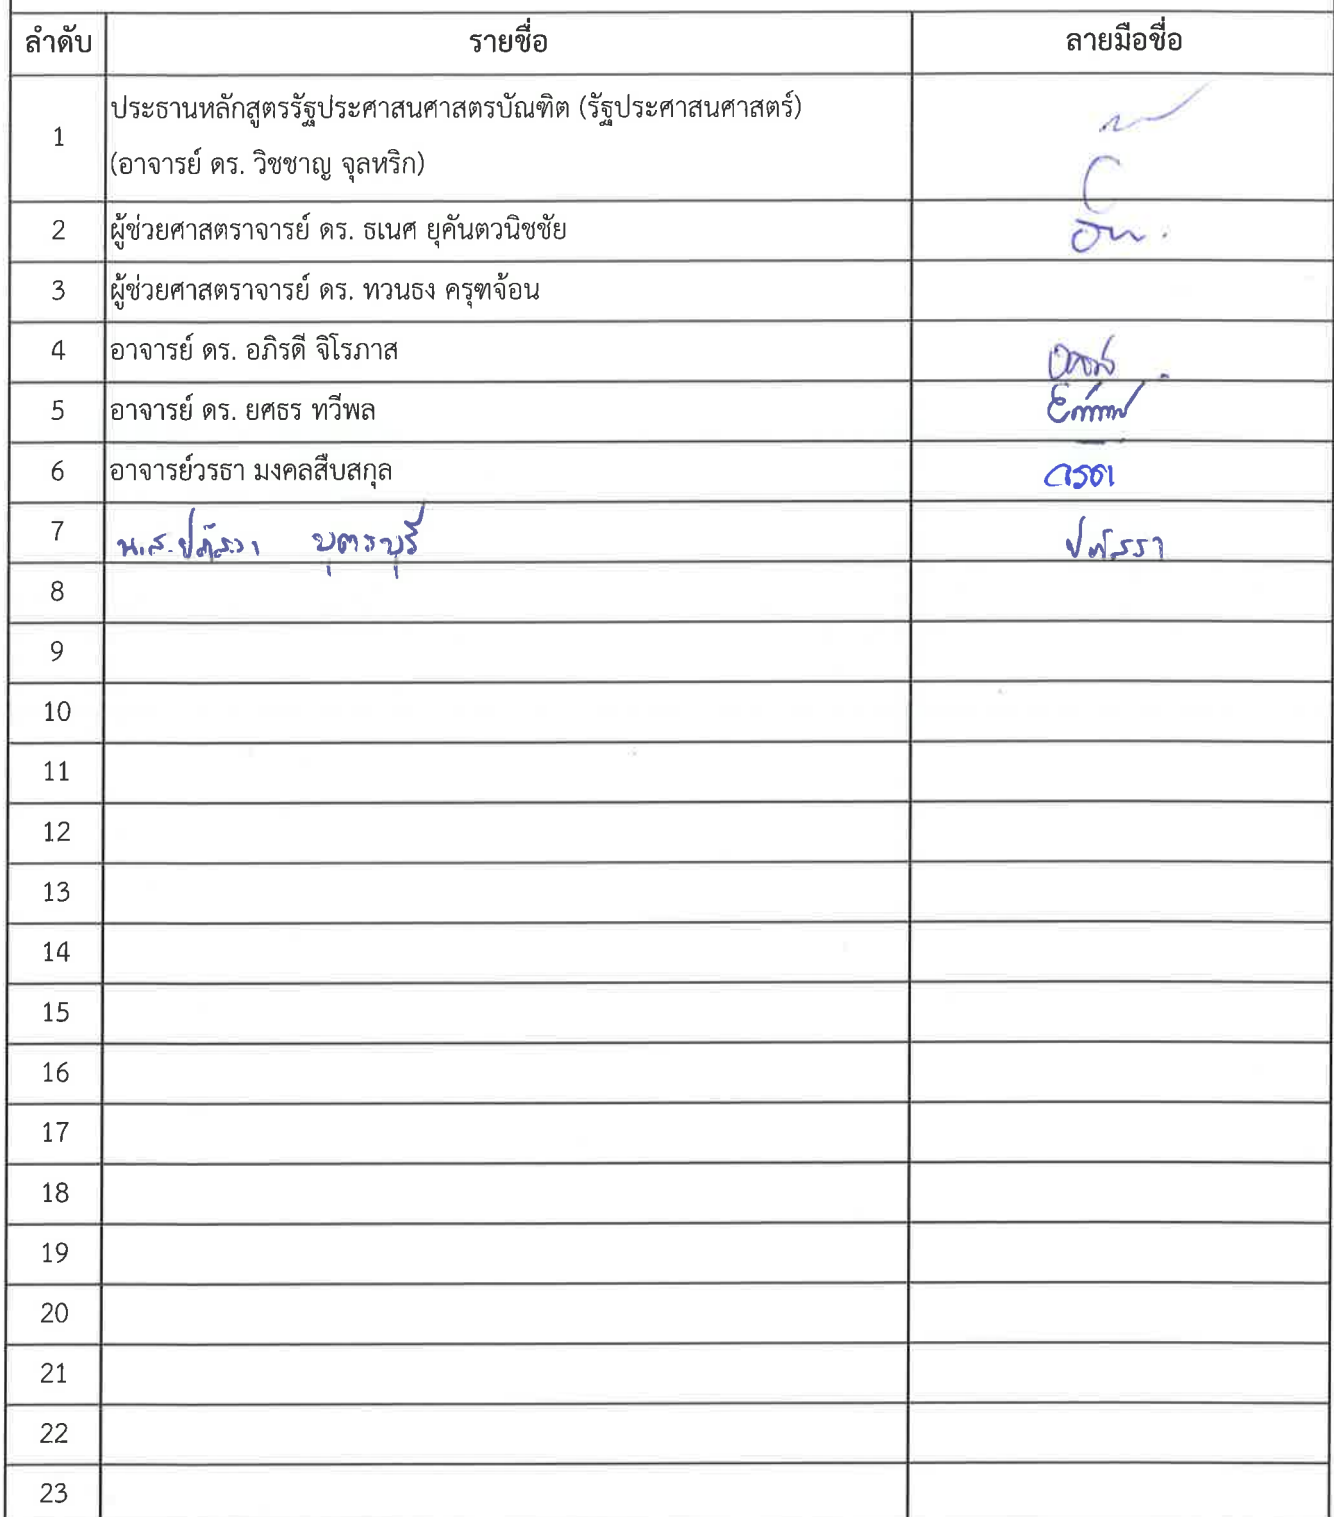 ลำดับ รายชื่อ ลายมือชื่อ
1 ประธานหลักสูตรรัฐประศาสนศาสตรบัณฑิต (รัฐประศาสนศาสตร์)
(อาจารย์ ดร. วิชชาญ จุลหริก)
2 ผู้ช่วยศาสตราจารย์ ดร. ธเนศ ยุคันตวนิชชัย
3 ผู้ช่วยศาสตราจารย์ ดร. ทวนธง ครุฑจ้อน
4 อาจารย์ ดร. อภิรดี จิโรภาส
5 อาจารย์ ดร. ยศธร ทวีพล
6 อาจารย์วรธา มงคลสืบสกุล วรธา
7 น.ส.ปภัสรา บุตรบุรี ปภัสรา
8
9
10
11
12
13
14
15
16
17
18
19
20
21
22
23